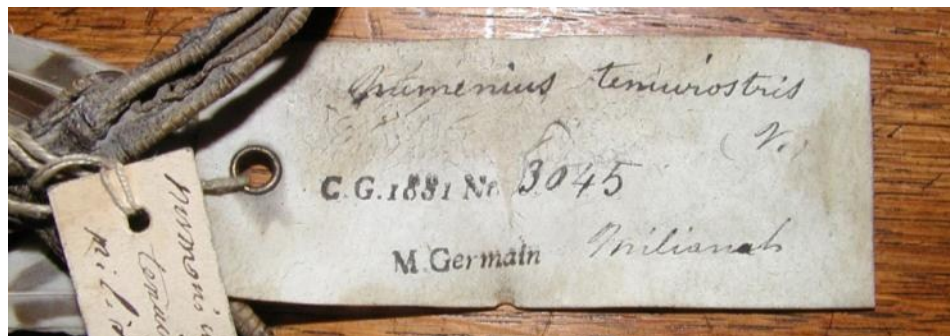 Numenius tenuirostris
(V.)
C.G.1881 No 3045
M Germain Milianah